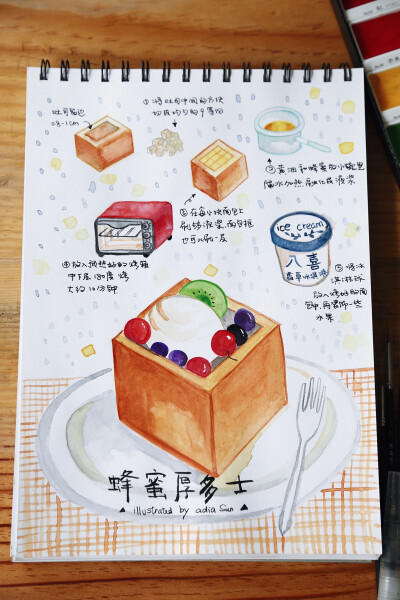 吐司留边
0.8-1cm
① 将吐司中间的方块
切成均匀的9等份
② 黄油和蜂蜜放小碗里
隔水加热,融化成液浆
③ 在每小块面包上
刷,面包框
也可以刷一层
④ 放入预热好的烤箱
中下层180度烤
大约10分钟
ice cream
八喜
香草冰淇淋
⑤ 挖冰
淇淋球
放入烤好的面
包中,再装饰一些
水果
蜂蜜厚多士
▲ illustrated by adia Sun ▲